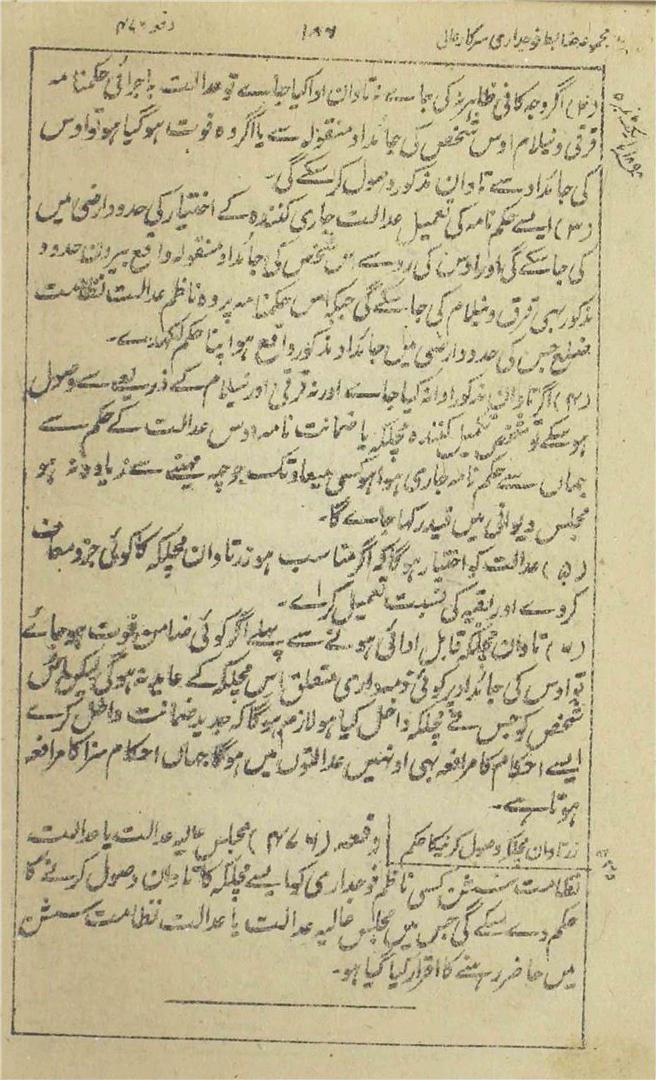 مجموعہ ضابطہ فوجداری سرکار عالی
۱۸۶
دفعہ ۴۷۶
(۲) اگر وجہ کافی ظاہر نہ کی جاے نہ تاوان ادا کیا جاے تو عدالت باجرائی حکمنامہ
قرقی و نیلام اوس شخص کی جائداد منقولہ سے یا اگر وہ فوت ہوگیا ہو تو اوس
کی جائداد سے تاوان مذکور وصول کر سکے گی۔
(۳) ایسے حکم نامہ کی تعمیل عدالت جاری کنندہ کے اختیار کی حدود ارضی میں
کی جاسکے گی اور اوس کی روسے اس شخص کی جائداد منقولہ واقع بیرون حدود
مذکور بہی قرق و نیلام کی جاسکے گی جبکہ اس حکمنامہ پر وہ ناظم عدالت نظامت
ضلع جس کی حدود ارضی میں جائداد مذکور واقع ہو اپنا حکم لکھدے۔
(۴) اگر تاوان مذکور ادا نہ کیا جاے اور نہ قرقی اور نیلام کے ذریعہ سے وصول
ہوسکے تو شخص تکمیل کنندہ مچلکہ یا ضمانت نامہ اوس عدالت کے حکم سے
جہاں سے حکم نامہ جاری ہوا ہو کسی میعاد تک جو چہ مہینے سے زیادہ نہ ہو
مجلس دیوانی میں قید رکہا جاے گا۔
(۵) عدالت کو اختیار ہوگا کہ اگر مناسب ہو زر تاوان مچلکہ کا کوئی جزو معاف
کردے اور بقیہ کی نسبت تعمیل کراے۔
(۶) تاوان مچلکہ قابل ادائی ہونے سے پہلے اگر کوئی ضامن فوت ہوجائے
تو اوس کی جائداد پر کوئی ذمہ داری متعلق اس مچلکہ کے عاید نہ ہوگی لیکن اس
شخص کو جس نے مچلکہ داخل کیا ہو لازم ہوگا کہ جدید ضمانت داخل کرے
ایسے احکام کا مرافعہ بہی اونہیں عدالتوں میں ہوگا جہاں احکام سزا کا مرافعہ
ہوتا ہے۔
زر تاوان مچلکہ وصول کرنیکا حکم
دفعہ (۴۷۶) مجلس عالیہ عدالت یا عدالت
نظامت سشن کسی ناظم فوجداری کو ایسے مچلکہ کا تاوان وصول کرنے کا
حکم دے سکے گی جس میں مجلس عالیہ عدالت یا عدالت نظامت سشن
میں حاضر رہنے کا اقرار کیا گیا ہو۔